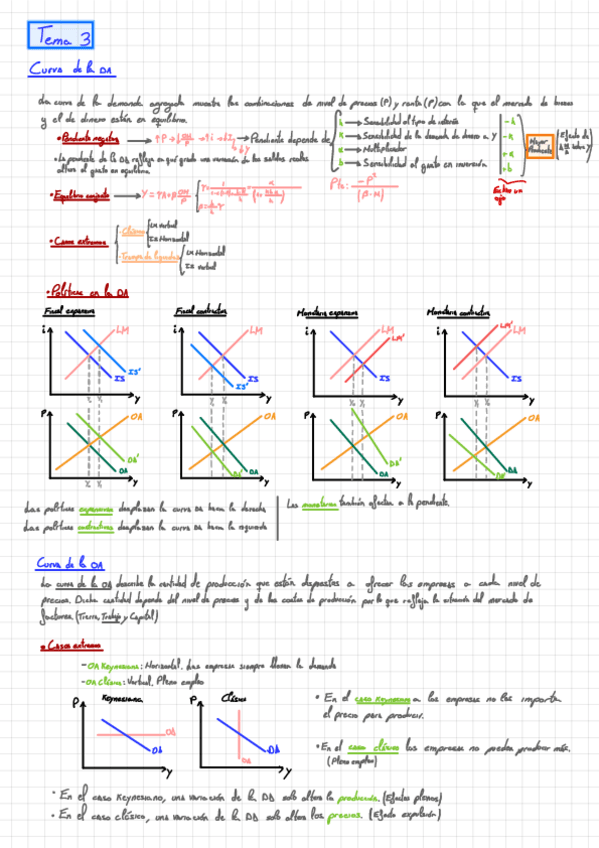 Tema 3
Curva de la DA
La curva de la demanda agregada muestra las combinaciones de nivel de precios (P) y renta (Y) con la que el mercado de bienes
y el de dinero están en equilibrio.
• Pendiente negativa → ↑P → ↓ → ↑i → ↓I → ↓Y → Pendiente depende de
h → Sensibilidad al tipo de interés
k → Sensibilidad de la demanda de dinero a Y
α → Multiplicador
b → Sensibilidad al gasto en inversión
-h
-k
+α
+b
Mayor Pendiente
Efecto de
sobre Y
Están en
eje
• La pendiente de la DA refleja en qué grado una variación de los saldos reales
altera el gasto en equilibrio.
• Equilibrio conjunto → Y =
Pte: -P²
(β·M)
• Casos extremos
- Clásico
LM vertical
IS Horizontal
- Trampa de liquidez
LM Horizontal
IS vertical
• Políticas en la DA
Fiscal expansiva
Fiscal contractiva
Monetaria expansiva
Monetaria contractiva
i LM IS' IS Y
i LM IS IS' Y
i LM LM' IS Y
i LM' LM IS Y
P OA DA' DA Y
P OA DA' DA Y
P OA DA' DA Y
P OA DA' DA Y
Las políticas expansivas desplazan la curva DA hacia la derecha
Las políticas contractivas desplazan la curva DA hacia la izquierda
Las monetarias también afectan a la pendiente.
Curva de la OA
La curva de la OA describe la cantidad de producción que están dispuestas a ofrecer las empresas a cada nivel de
precios. Dicha cantidad depende del nivel de precios y de los costes de producción por lo que refleja la situación del mercado de
factores. (Tierra, Trabajo y Capital)
• Casos extremos
- OA Keynesiana: Horizontal. Las empresas siempre llenan la demanda
- OA Clásica: Vertical. Pleno empleo
Keynesiana
P OA DA Y
Clásico
P DA OA Y
• En el caso Keynesiano a las empresas no les importa
el precio para producir.
• En el caso clásico las empresas no pueden producir más.
(Pleno empleo)
• En el caso Keynesiano, una variación de la DA solo altera la producción. (Efectos plenos)
• En el caso clásico, una variación de la DA solo altera los precios. (Efecto expulsión)